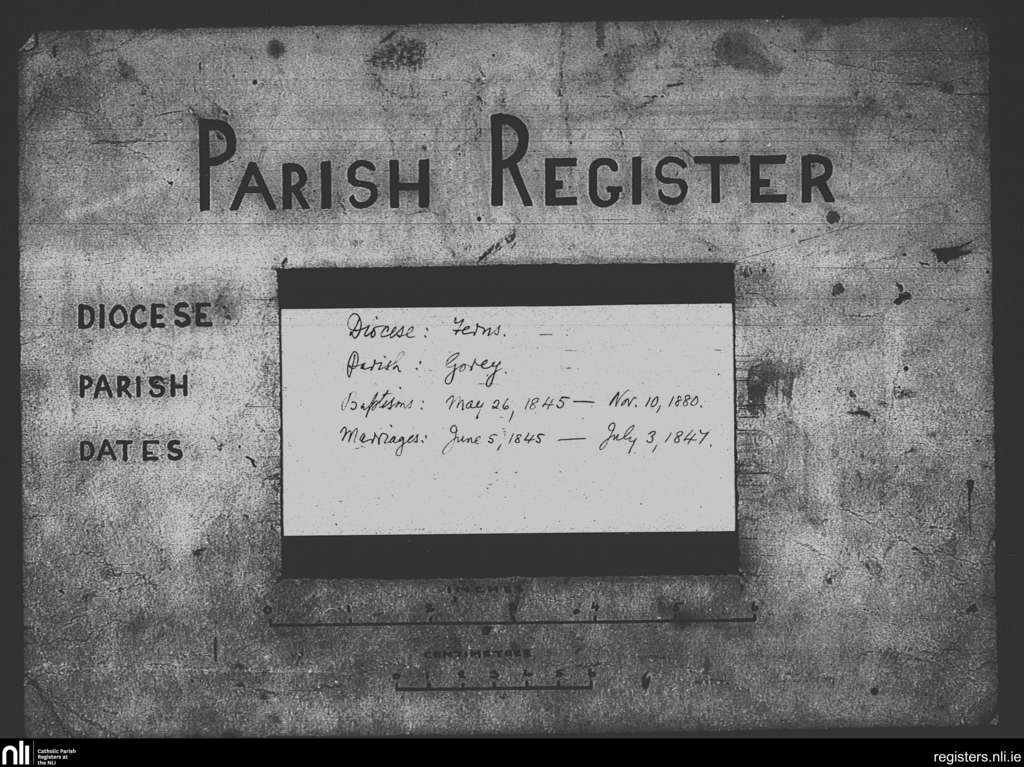 PARISH REGISTER
DIOCESE
PARISH
DATES
Diocese: Ferns.
Parish: Gorey.
Baptisms: May 26, 1845 — Nov. 10, 1880.
Marriages: June 5, 1845 — July 3, 1847.
INCHES
0 1 2 3 4 5 6
CENTIMETRES
nli
Catholic Parish
Registers at
the NLI
registers.nli.ie